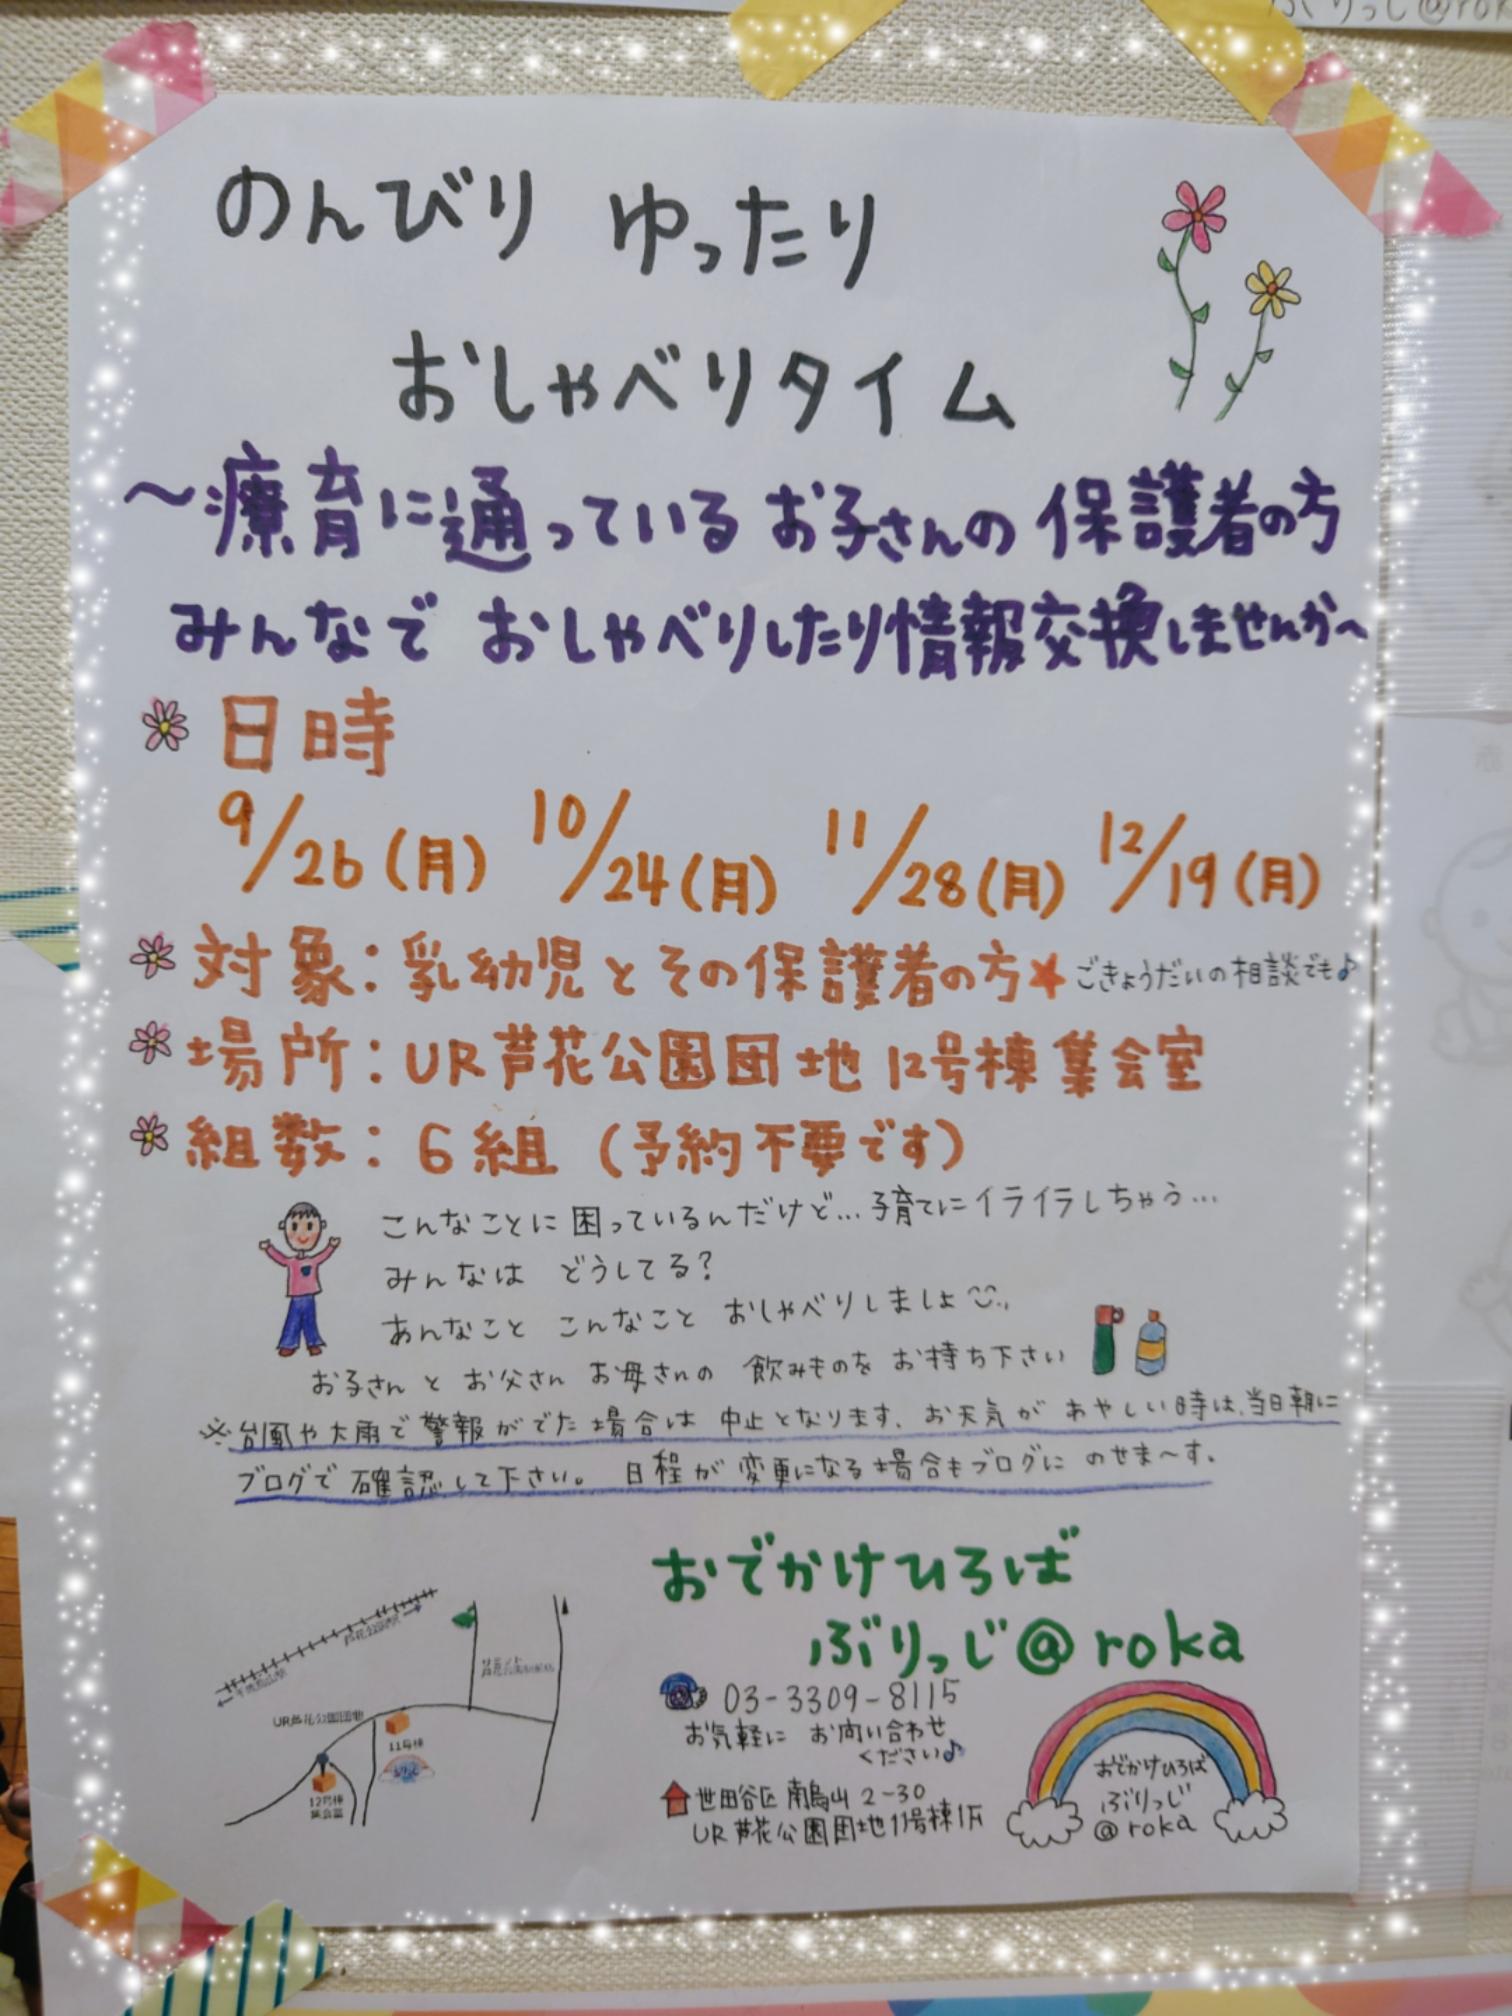 ぶりっじ@rok
のんびり ゆったり
おしゃべりタイム
～療育に通っているお子さんの保護者の方
みんなで おしゃべりしたり情報交換しませんか～
日時
9/26(月) 10/24(月) 11/28(月) 12/19(月)
対象：乳幼児とその保護者の方★ごきょうだいの相談でも♪
場所：UR芦花公園団地12号棟集会室
組数：6組（予約不要です）
こんなことに困っているんだけど…子育てにイライラしちゃう…
みんなは どうしてる?
あんなこと こんなこと おしゃべりしましょ
お子さんとお父さん お母さんの 飲みものを お持ち下さい
※台風や大雨で警報がでた場合は 中止となります。お天気が あやしい時は、当日朝に
ブログで確認して下さい。 日程が変更になる場合もブログに のせま～す。
おでかけひろば
ぶりっじ@roka
03-3309-8115
お気軽に お問い合わせ
ください♪
世田谷区 南烏山 2-30
UR芦花公園団地11号棟1F
おでかけひろば
ぶりっじ
@roka
芦花公園駅
千歳烏山駅
UR芦花公園団地
11号棟
12号棟
集会室